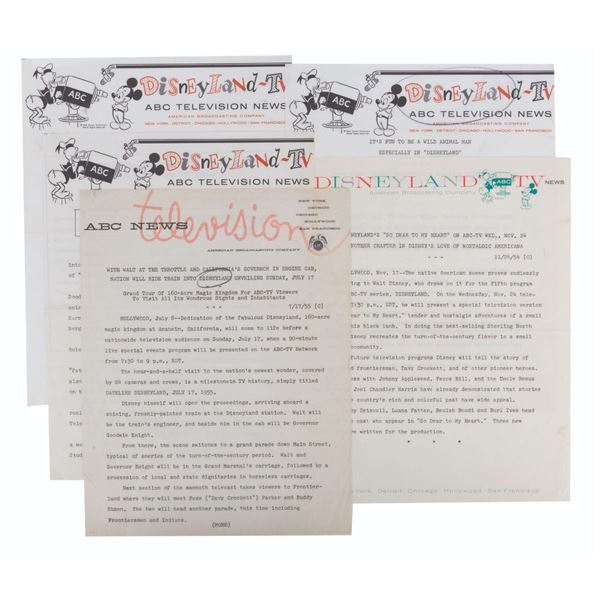 DisneyLand-TV
ABC TELEVISION NEWS
AMERICAN BROADCASTING COMPANY
NEW YORK·DETROIT·CHICAGO·HOLLYWOOD·SAN FRANCISCO
ABC
DisneyLand-TV
ABC TELEVISION NEWS
AMERICAN BROADCASTING COMPANY
NEW YORK·DETROIT·CHICAGO·HOLLYWOOD·SAN FRANCISCO
ABC
IT'S FUN TO BE A WILD ANIMAL MAN
ESPECIALLY IN "DISNEYLAND"
DisneyLand-TV
ABC TELEVISION NEWS
ABC
DISNEYLAND TV NEWS
American Broadcasting Company
NEYLAND'S "SO DEAR TO MY HEART" ON ABC-TV WED., NOV. 24
NOTHER CHAPTER IN DISNEY'S LOVE OF NOSTALGIC AMERICANA
11/24/54 (C)
LYWOOD, Nov. 17—The native American scene proves endlessly
ng to Walt Disney, who drew on it for the fifth program
BC-TV series, DISNEYLAND. On the Wednesday, Nov. 24 tele-
7:30 p.m., EDT, he will present a special television version
ar to My Heart," tender and nostalgic adventures of a small
his black lamb. In doing the best-selling Sterling North
Disney recreates the turn-of-the-century flavor in a small
community.
future television programs Disney will tell the story of
d frontiersman, Davy Crockett, and of other pioneer heroes.
ess with Johnny Appleseed, Pecos Bill, and the Uncle Remus
Joel Chandler Harris have already demonstrated that stories
country's rich and colorful past have wide appeal.
by Driscoll, Luana Patten, Beulah Bondi and Burl Ives head
cast who appear in "So Dear to My Heart." Three new
re written for the production.
York, Detroit, Chicago, Hollywood, San Francisco
ABC NEWS television
NEW YORK
DETROIT
CHICAGO
HOLLYWOOD
SAN FRANCISCO
AMERICAN BROADCASTING COMPANY
WITH WALT AT THE THROTTLE AND CALIFORNIA'S GOVERNOR IN ENGINE CAB,
NATION WILL RIDE TRAIN INTO DISNEYLAND UNVEILING SUNDAY, JULY 17
Grand Tour Of 160-acre Magic Kingdom For ABC-TV Viewers
To Visit All Its Wondrous Sights and Inhabitants
7/17/55 (C)
HOLLYWOOD, July 6—Dedication of the fabulous Disneyland, 160-acre
magic kingdom at Anaheim, California, will come to life before a
nationwide television audience on Sunday, July 17, when a 90-minute
live special events program will be presented on the ABC-TV Network
from 7:30 to 9 p.m., EDT.
The hour-and-a-half visit to the nation's newest wonder, covered
by 24 cameras and crews, is a milestone in TV history, simply titled
DATELINE DISNEYLAND, JULY 17, 1955.
Disney himself will open the proceedings, arriving aboard a
shining, freshly-painted train at the Disneyland station. Walt will
be the train's engineer, and beside him in the cab will be Governor
Goodwin Knight.
From there, the scene switches to a grand parade down Main Street,
typical of America of the turn-of-the-century period. Walt and
Governor Knight will be in the Grand Marshal's carriage, followed by a
procession of local and state dignitaries in horseless carriages.
Next section of the mammoth telecast takes viewers to Frontier-
land where they will meet Fess ("Davy Crockett") Parker and Buddy
Ebsen. The two will head another parade, this time including
Frontiersmen and Indians.
(MORE)